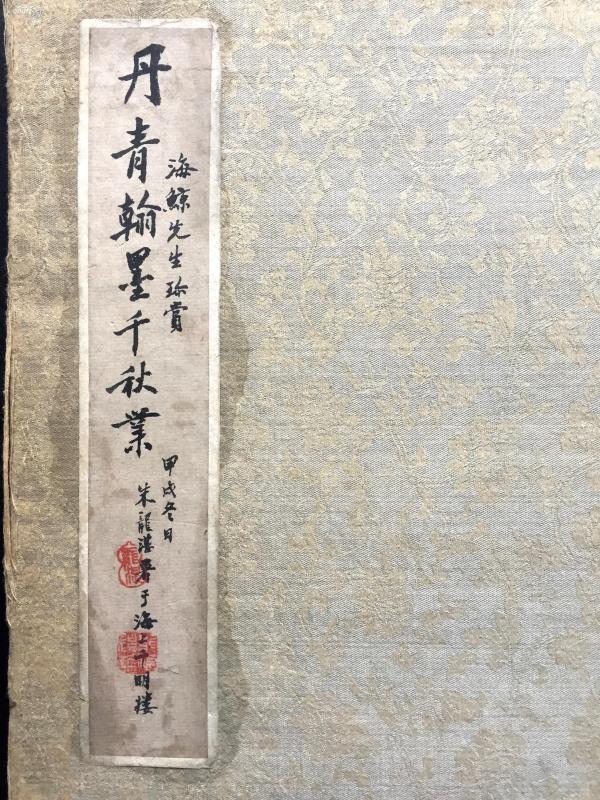 丹青翰墨千秋業
海鯨先生珍賞
甲戌冬日
朱龍湛署于海上平明樓